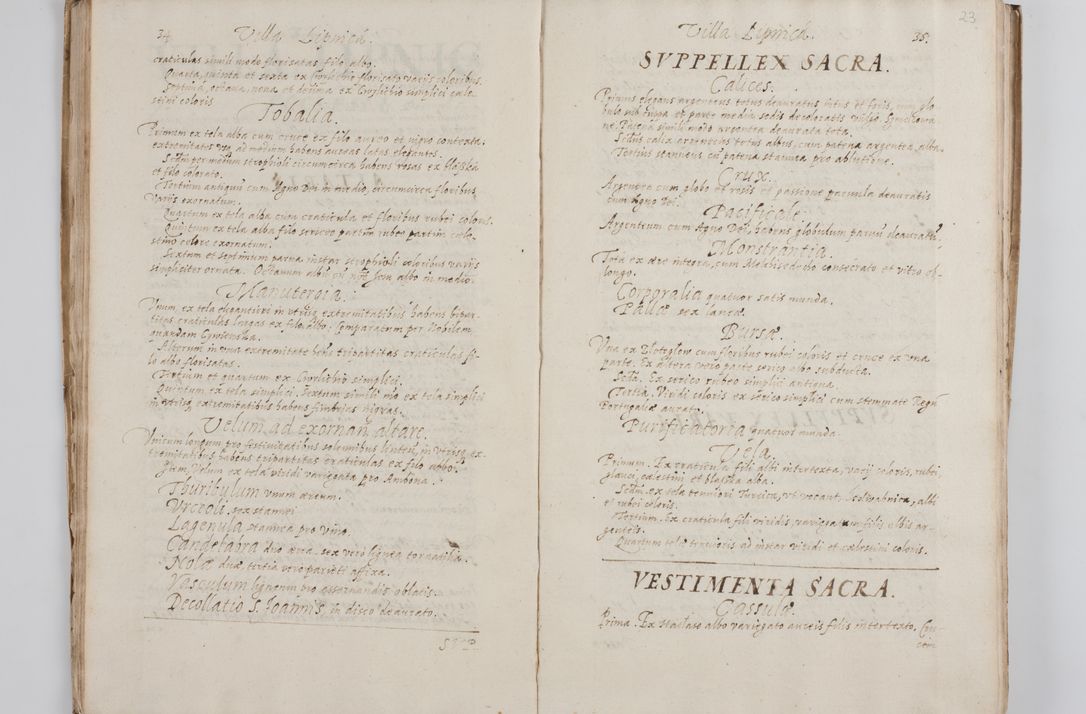 34 Villa Lipnick.
craticulas simili modo florisatas filo albo.
Quarta, quinta et sexta ex Cnylichio florisato variis coloribus.
Septima, octava, nona et decima ex Cnylichio simplici cæle-
stini coloris
Tobalia.
Primum ex tela alba cum cruce ex filo aureo et nigro contexta.
extremitates ad medium habens aureas latas elegantes.
Scdm per modum strophioli circumcirca habens rosas ex
et filo colorato.
Tertium antiquũ cum Agno Dei in medio, circumcirca floribus
variis exornatum.
Quartum ex tela alba cum craticula et floribus rubei coloris.
Quintum ex tela alba filo sericeo partim rubeo partim cæle-
stino colore exornatum.
Sextum et septimum parva instar strophioli coloribus variis
simpliciter ornata. Octavum albũ albo in medio.
Manutergia.
Vnum ex tela elegantiore in utrisq extremitatibus habens tripar-
titas craticulas longas ex filo albo. Comparatum per Nobilem
quandam
Alterum in una extremitate bene tripartitas craticulas fi-
lo albo florisatas.
Tertium et quartum ex Cnylichio simplici.
Quintum ex tela simplici, Sextum simili mo ex tela simplici
in utrisq extremitatibus habens fimbrias nigras.
Velum ad exornan altare.
Vnicum longum pro festivitatibus solemnibus linteũ, in utrisq ex-
tremitatibus habens tripartitas craticulas ex filo albo.
Item, Velum ex tela viridi variegata pro Ambona.
Thuribulum unum æreum.
Vrceoli sex stannei
Lagenula stannea pro vino.
Candelabra duo ærea, sex vero lignea tornatilia.
Nolæ duæ, tertia vero parieti affixa.
Vasculum ligneum pro asservandis oblatis.
Decollatio S. Joannis, in disco deaurato.
SVP
23
Villa Lipnick. 35.
SVPPELLEX SACRA.
Calices.
Primus elegans argenteus totus deauratus intus et foris, cum glo-
bulo sub cuppa et parte media sedis decoloratis vulgo Smelcowa-
ne. Patena simili modo argentea deaurata tota.
Scdus calix argenteus totus albus, cum patena argentea, alba.
Tertius stanneus cũ patena stannea pro ablutione.
Crux.
Argentea cum globo et rosis et passione parvula deauratis
cum Agno Dei.
Pacificale
Argenteum cum Agno Dei, habens globulum parvũ deauratũ.
Monstrantia.
Tota ex ære integra, cum Melchisedecho consecrato et vitro ob-
longo.
Corporalia quatuor satis munda.
Pallæ sex
Bursæ.
Vna ex cum floribus rubei coloris et cruce ex una
parte. Ex altera vero parte serico albo subducta.
Scda. Ex serico rubeo simplici antiqua.
Tertia. Viridi coloris ex serico simplici cum stemmate Regni
Portugaliæ aurato.
Purificatoria quatuor munda.
Vela.
Primum. Ex craticula fili albi intertexta, varij coloris, rubri,
glauci, cælestini et alba.
Scdm. ex tela tenuiori Turcica, ut vocant, albi
et rubei coloris.
Tertium. Ex craticula fili viridis, variegatum filis albis ar-
genteis.
Quartum telæ ad instar viridi et cælestini coloris.
VESTIMENTA SACRA.
Cassulæ.
Prima. Ex albo variegato aureis filis intertexto, Cru-
cem